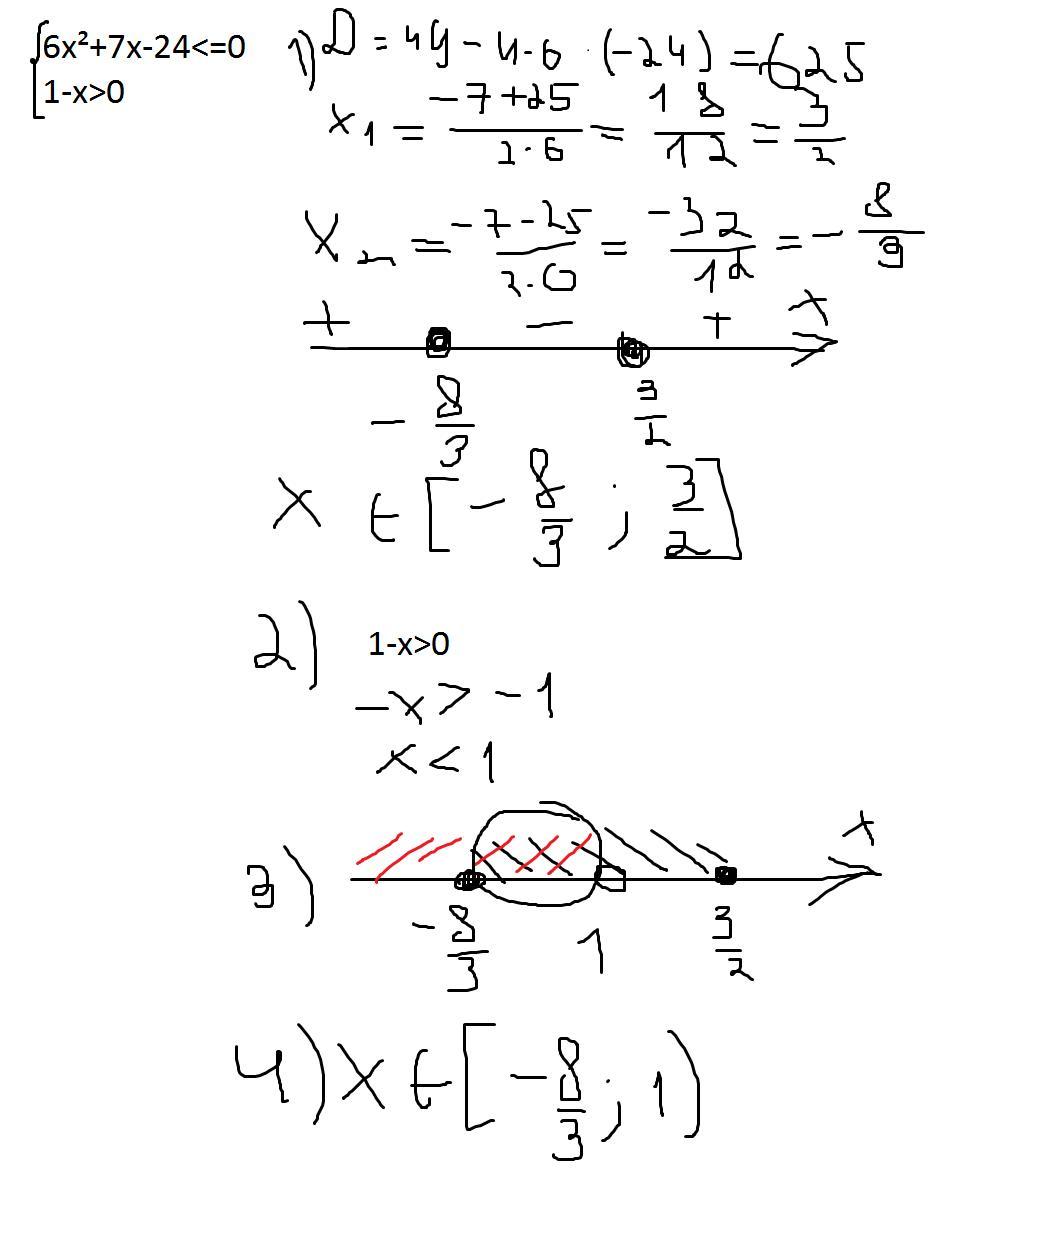 6x²+7x-24<=0
1-x>0
1) D = 49 - 4·6 · (-24) = 625
x₁ = (-7+25)/(2·6) = 18/12 = 3/2
x₂ = (-7-25)/(2·6) = -32/12 = -8/3
+ − + x
-8/3 3/2
x ∈ [-8/3 ; 3/2]
2) 1-x>0
-x > -1
x < 1
3) x
-8/3 1 3/2
4) x ∈ [-8/3 ; 1)